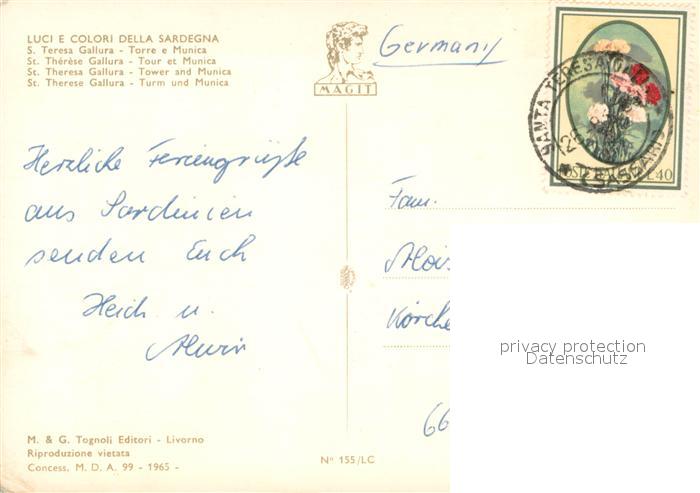 LUCI E COLORI DELLA SARDEGNA
S. Teresa Gallura - Torre e Munica
St. Thérèse Gallura - Tour et Munica
St. Therese Gallura - Tower and Munica
St. Therese Gallura - Turm und Munica
MAGIT
Germany
SANTA TERESA
(SASSARI)
POSTE L. 40
Herzliche Feriengrüße
aus Sardinien
senden Euch
Heich u.
Fam.
Alois
privacy protection
Datenschutz
66
M. & G. Tognoli Editori - Livorno
Riproduzione vietata
Concess. M. D. A. 99 - 1965 -
Nº 155/LC